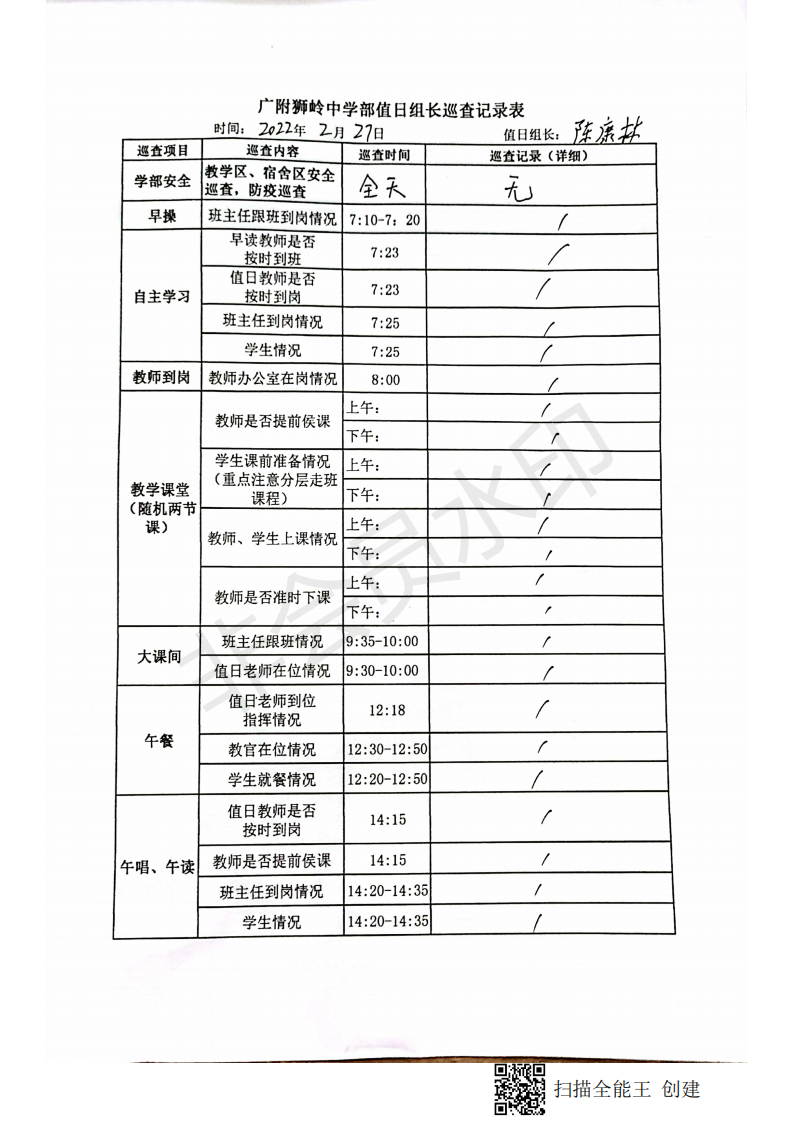 广附狮岭中学部值日组长巡查记录表
时间：2022年 2月 27日 值日组长：陈康林
巡查项目 巡查内容 巡查时间 巡查记录（详细）
学部安全 教学区、宿舍区安全巡查，防疫巡查 全天 无
早操 班主任跟班到岗情况 7:10-7：20 /
自主学习 早读教师是否按时到班 7:23 /
值日教师是否按时到岗 7:23 /
班主任到岗情况 7:25 /
学生情况 7:25 /
教师到岗 教师办公室在岗情况 8:00 /
教学课堂（随机两节课） 教师是否提前侯课 上午： /
下午： /
学生课前准备情况（重点注意分层走班课程） 上午： /
下午： /
教师、学生上课情况 上午： /
下午： /
教师是否准时下课 上午： /
下午： /
大课间 班主任跟班情况 9:35-10:00 /
值日老师在位情况 9:30-10:00 /
午餐 值日老师到位指挥情况 12:18 /
教官在位情况 12:30-12:50 /
学生就餐情况 12:20-12:50 /
午唱、午读 值日教师是否按时到岗 14:15 /
教师是否提前侯课 14:15 /
班主任到岗情况 14:20-14:35 /
学生情况 14:20-14:35 /
非会员水印
扫描全能王 创建